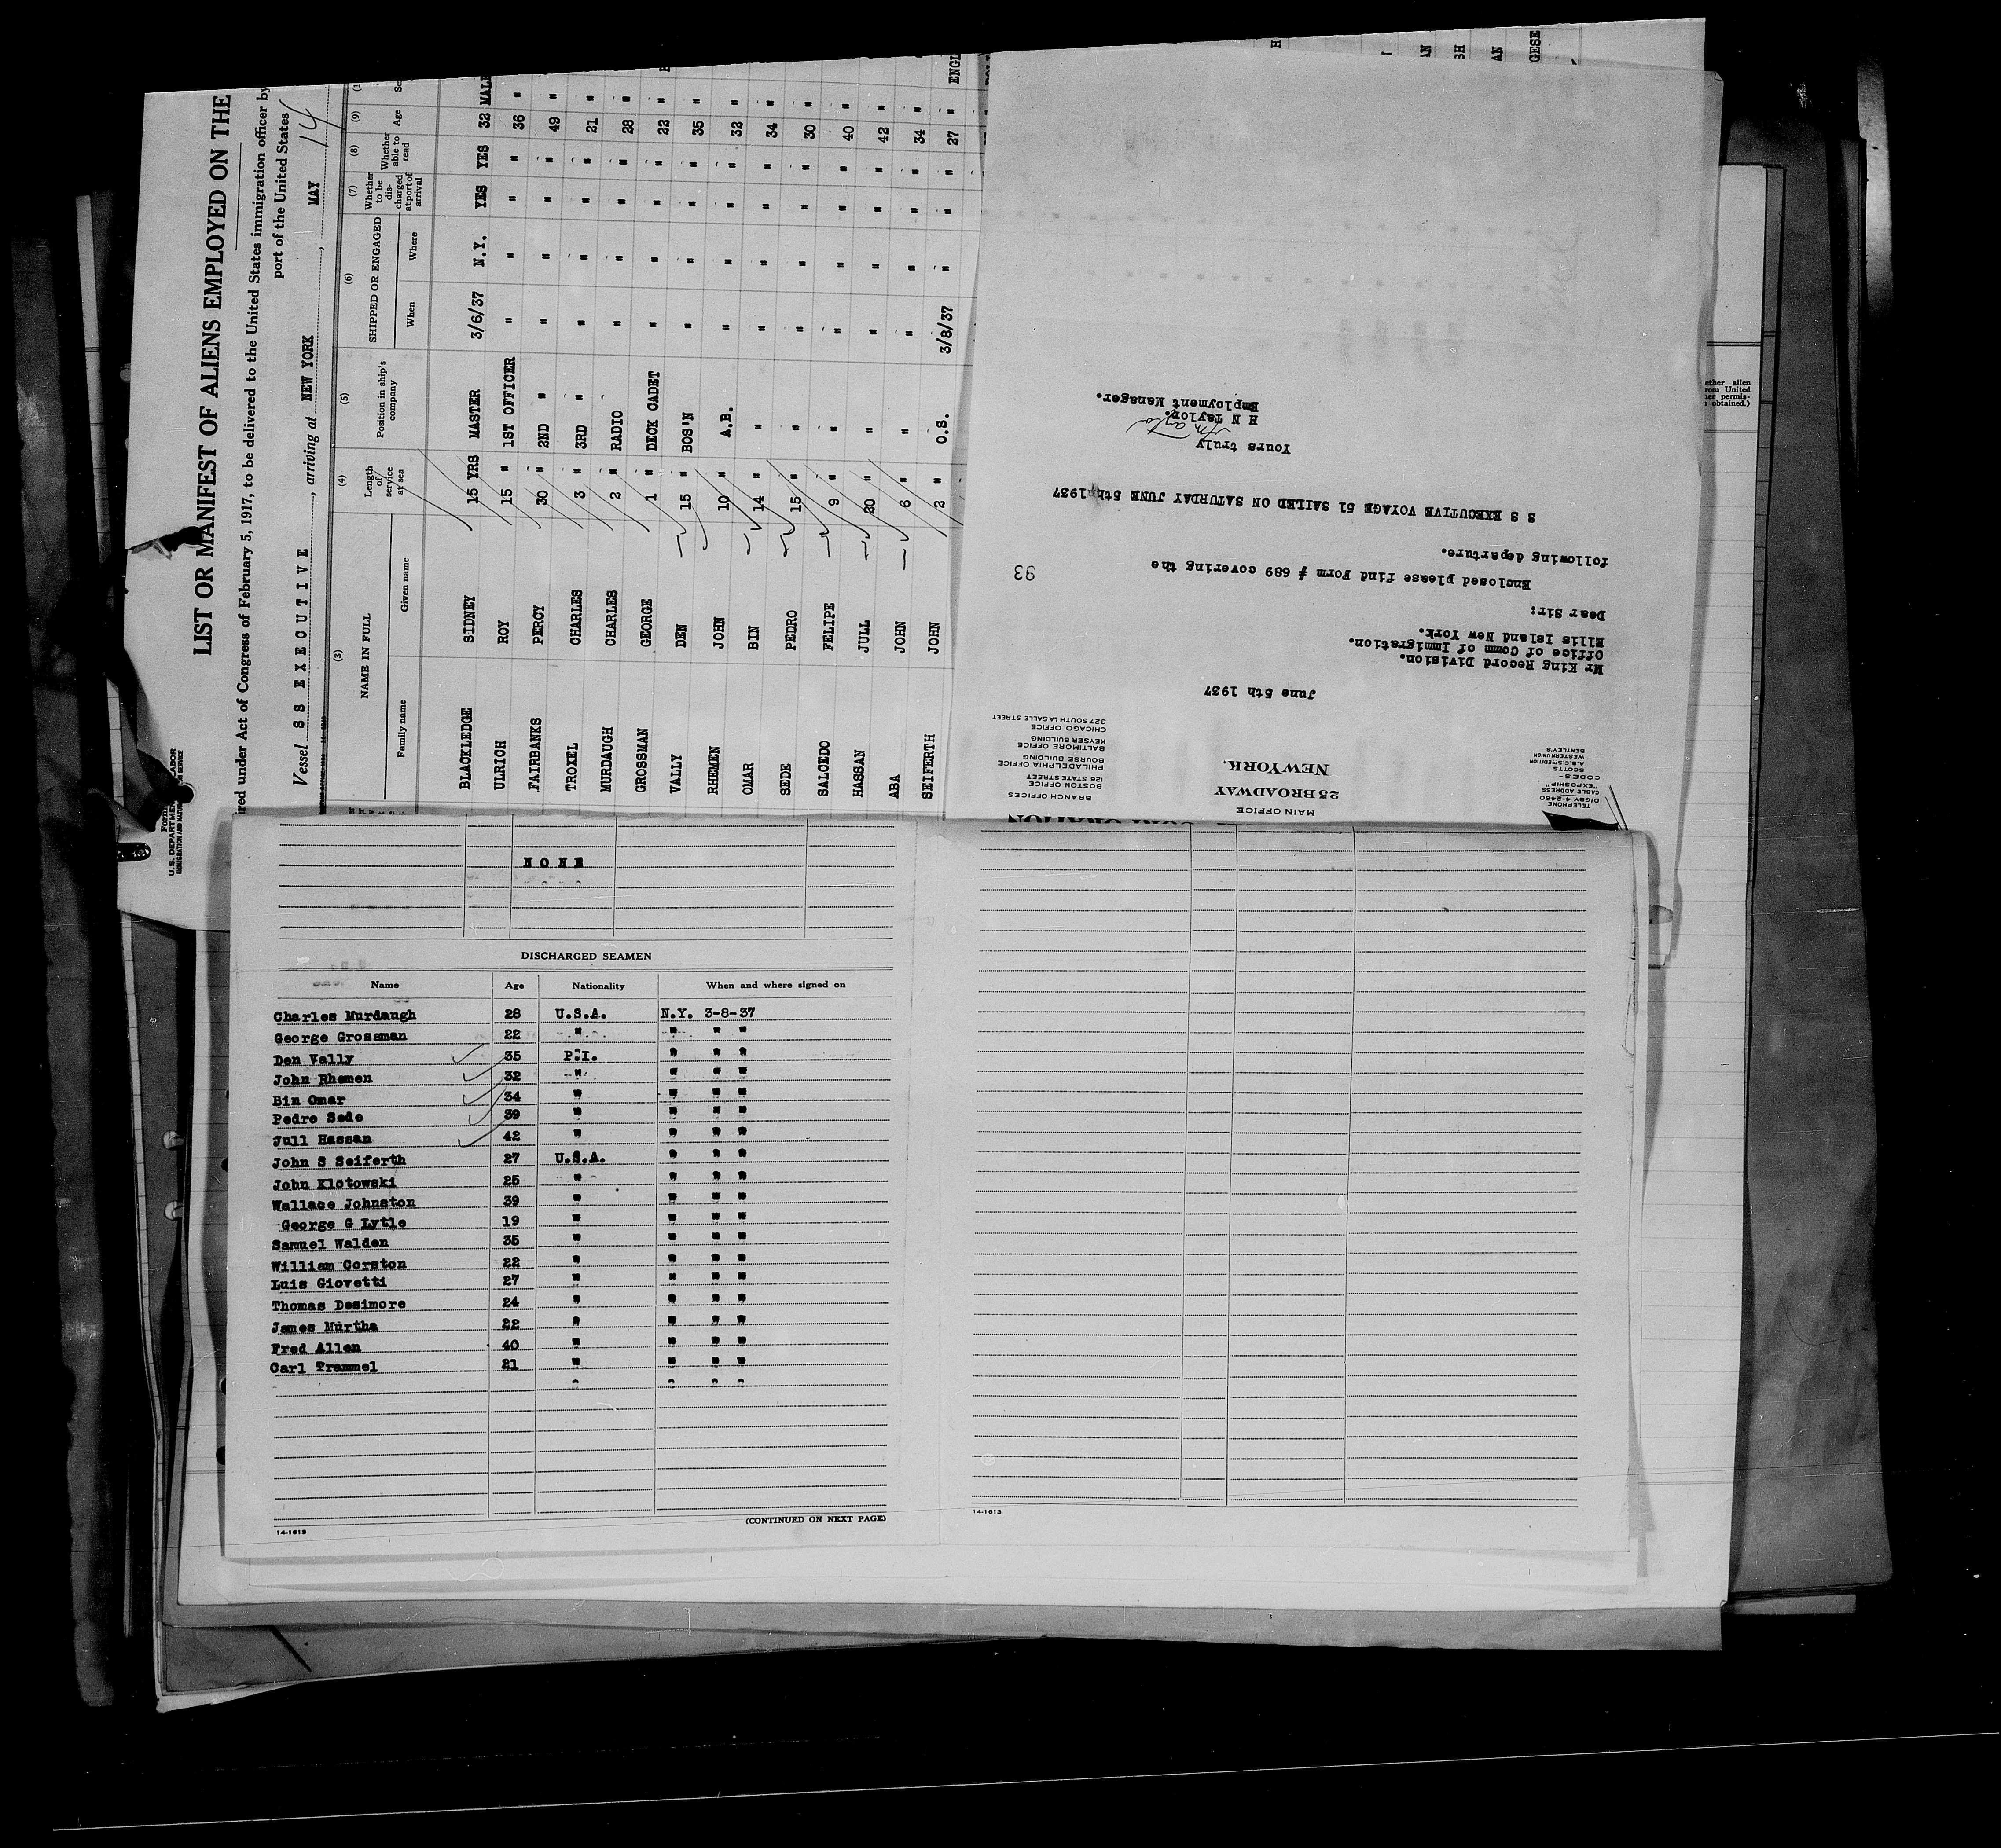 LIST OR MANIFEST OF ALIENS EMPLOYED ON THE
ired under Act of Congress of February 5, 1917, to be delivered to the United States immigration officer by
port of the United States
Vessel SS EXECUTIVE, arriving at NEW YORK, MAY 14
U. S. DEPARTMENT LABOR
(3) (4) (5) (6) (7) (8) (9)
NAME IN FULL
Family name Given name
Length of service at sea
Position in ship's company
SHIPPED OR ENGAGED
When Where
Whether to be discharged at port of arrival
Whether able to read
Age
BLACKLEDGE SIDNEY 15 YRS MASTER 3/6/37 N.Y. YES YES 32 MALE
ULRICH ROY 15 " 1ST OFFICER " " " " 36 "
FAIRBANKS PERCY 30 " 2ND " " " " " 49 "
TROXEL CHARLES 3 " 3RD " " " " " 21 "
MURDAUGH CHARLES 2 " RADIO " " " " 28 "
GROSSMAN GEORGE 1 " DECK CADET " " " " 22 "
VALLY DEN 15 " BOS'N " " " " 35 "
RHEMEN JOHN 10 " A.B. " " " " 32 "
OMAR BIN 14 " " " " " " 34 "
SEDE PEDRO 15 " " " " " " 30 "
SALCEDO FELIPE 9 " " " " " " 40 "
HASSAN JULL 20 " " " " " " 42 "
ABA JOHN 6 " " " " " " 34 "
SEIFERTH JOHN 2 " O.S. 3/8/37 " " " 27 " ENGL
MAIN OFFICE
25 BROADWAY
NEW YORK.
TELEPHONE
DIGBY 4-2460
CABLE ADDRESS
"EXPOSHIP"
-CODES-
SCOTTS
A.B.C. 5TH EDITION
WESTERN UNION
BENTLEY'S
BRANCH OFFICES
BOSTON OFFICE
126 STATE STREET
PHILADELPHIA OFFICE
BOURSE BUILDING
BALTIMORE OFFICE
KEYSER BUILDING
CHICAGO OFFICE
327 SOUTH LA SALLE STREET
June 5th 1937
Mr King Record Division.
Office of Comm of Immigration.
Ellis Island New York.
Dear Sir:
Enclosed please find Form # 689 covering the
following departure.
93
S S EXECUTIVE VOYAGE 51 SAILED ON SATURDAY JUNE 5th 1937
Yours truly
H N Taylor.
Employment Manager.
ether alien
rom United
er permis-
obtained.)
NONE
DISCHARGED SEAMEN
Name Age Nationality When and where signed on
Charles Murdaugh 28 U.S.A. N.Y. 3-8-37
George Grossman 22 " " " "
Den Vally 35 P.I. " " "
John Rhemen 32 " " " "
Bin Omar 34 " " " "
Pedro Sede 39 " " " "
Jull Hassan 42 " " " "
John S Seiferth 27 U.S.A. " " "
John Klotowski 25 " " " "
Wallace Johnston 39 " " " "
George G Lytle 19 " " " "
Samuel Walden 35 " " " "
William Corston 22 " " " "
Luis Giovetti 27 " " " "
Thomas Desimore 24 " " " "
James Murtha 22 " " " "
Fred Allen 40 " " " "
Carl Trammel 21 " " " "
" " " "
14-1613
(CONTINUED ON NEXT PAGE)
14-1613